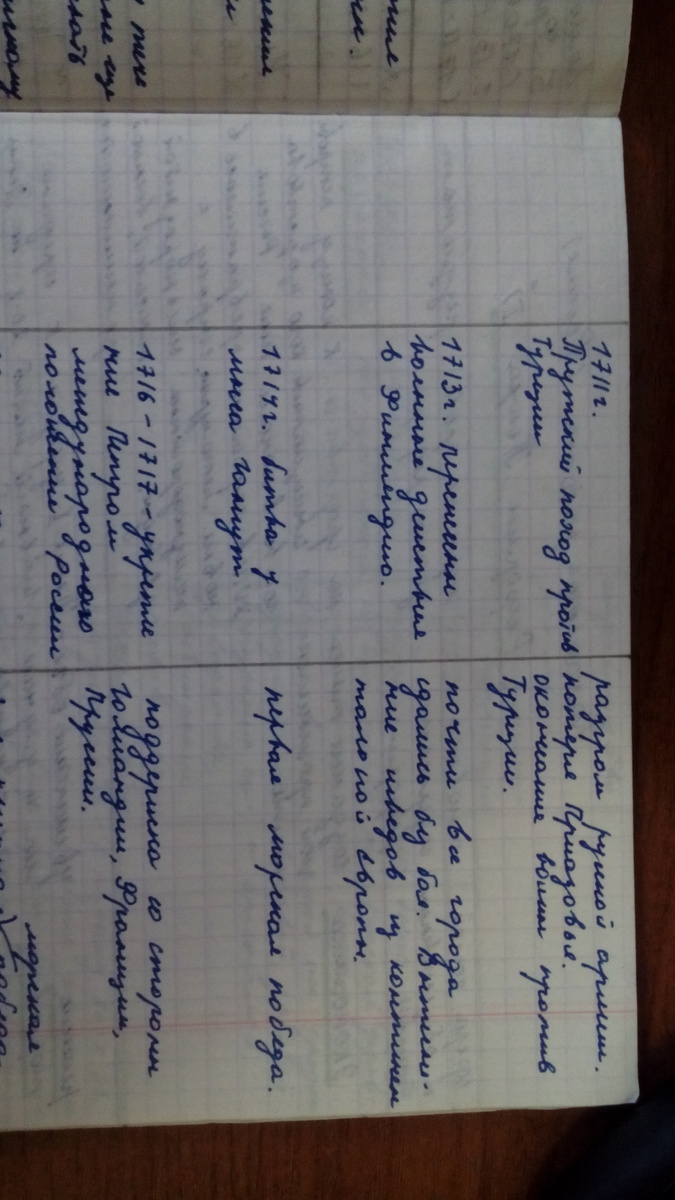 1711г.
Прутский поход против
Турции
разгром русской армии.
потеря Приазовья.
окончание войны против
Турции.
1713г. перенесены
военные действия
в Финляндию.
почти все города
сдались без боя. Вытесне-
ние шведов из континен
тальной Европы.
1714г. битва у
мыса Гангут
первая морская победа.
1716-1717 - укрепле
ние Петром
международного
положение России
поддержка со стороны
Голландии, Франции,
Пруссии.
морская